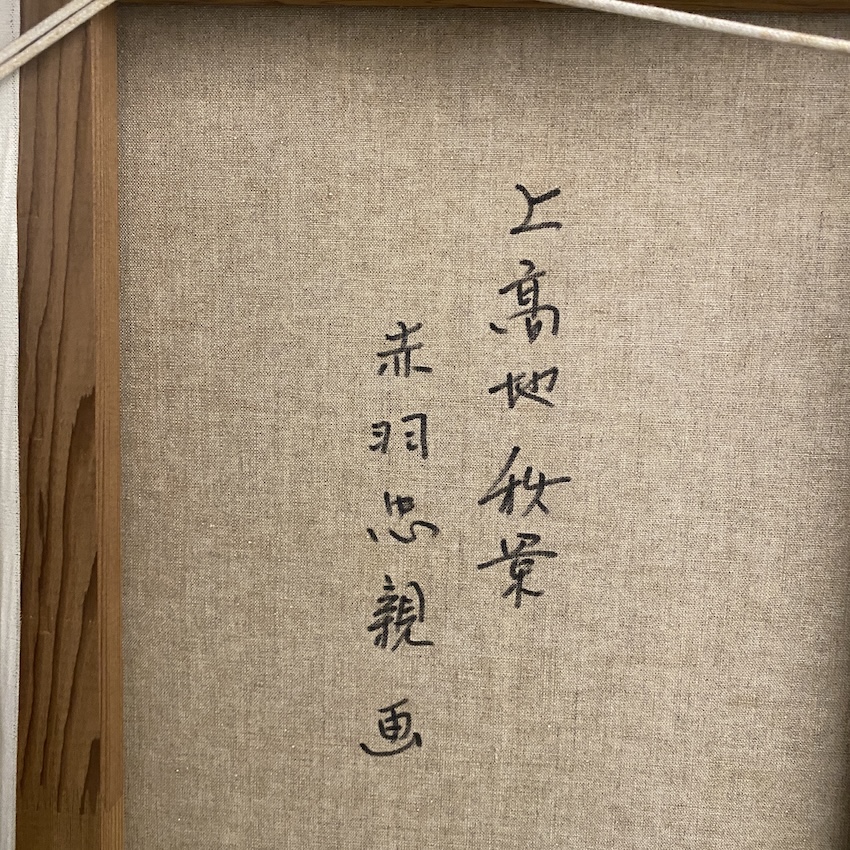 上高地秋景
赤羽忠親画